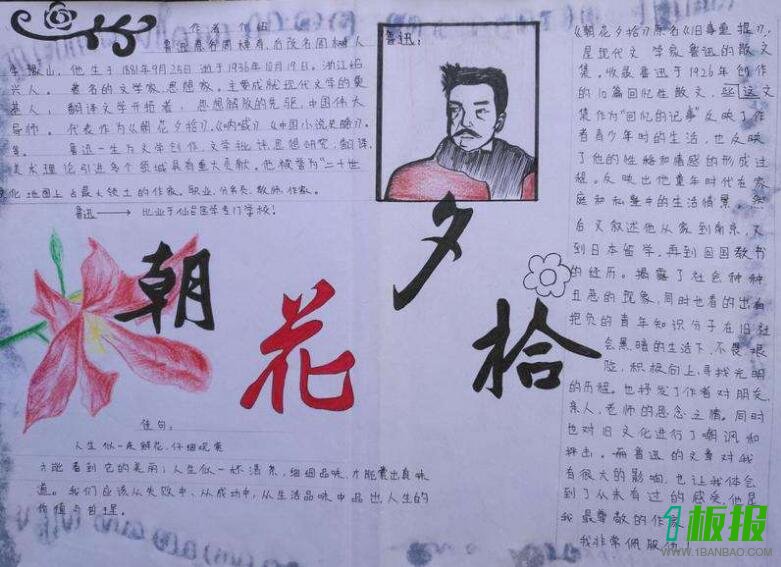 作者介绍
鲁迅原名周樟寿,后改名周树人
他生于1881年9月25日逝于1936年10月19日。浙江绍
兴人。著名的文学家,思想家。主要成就现代文学的奠
基人,翻译文学开拓者,思想解放的先驱,中国伟大
导师。代表作为《朝花夕拾》,《呐喊》《中国小说史略》,
等。鲁迅一生为文学创作,文学批评,思想研究,翻译,
美术理论引进多个领域具有重大贡献。他被誉为"二十世
化地图上占最大领土的作家。职业,分类员,教师,作家。
鲁迅——→毕业于仙台医学专门学校!
鲁迅:
朝
花
夕
拾
佳句:
人生似一朵鲜花,仔细观赏
才能看到它的美丽;人生似一杯清茶,细细品味,才能赏出真味
道。我们应该从失败中,从成功中,从生活品味中品出人生的
价值与哲理。
《朝花夕拾》原名《旧事重提》,
是现代文学家鲁迅的散文
集。收录鲁迅于1926年创作
的10篇回忆性散文,这文
集作为"回忆的记事"反映了作
者青少年时的生活,也反映
了他的性格和情感的形成过
程。反映出他童年时代在家
庭和私塾中的生活情景。然
后又叙述他从家到南京,又
到日本留学,再到回国教书
的经历。揭露了社会种种
丑恶的现象,同时也看的出有
抱负的青年知识分子在旧社
会黑暗的生活下,不畏艰
险,积极向上,寻找光明
的历程。也抒发了作者对朋友,
亲人,老师的思念之情。同时
也对旧文化进行了嘲讽和
抨击。而鲁迅的文章对我
有很大的影响,也让我体会
到了从未有过的感受,他是
我最尊敬的作家
我非常佩服他!
1板报
WWW.1BANBAO.COM